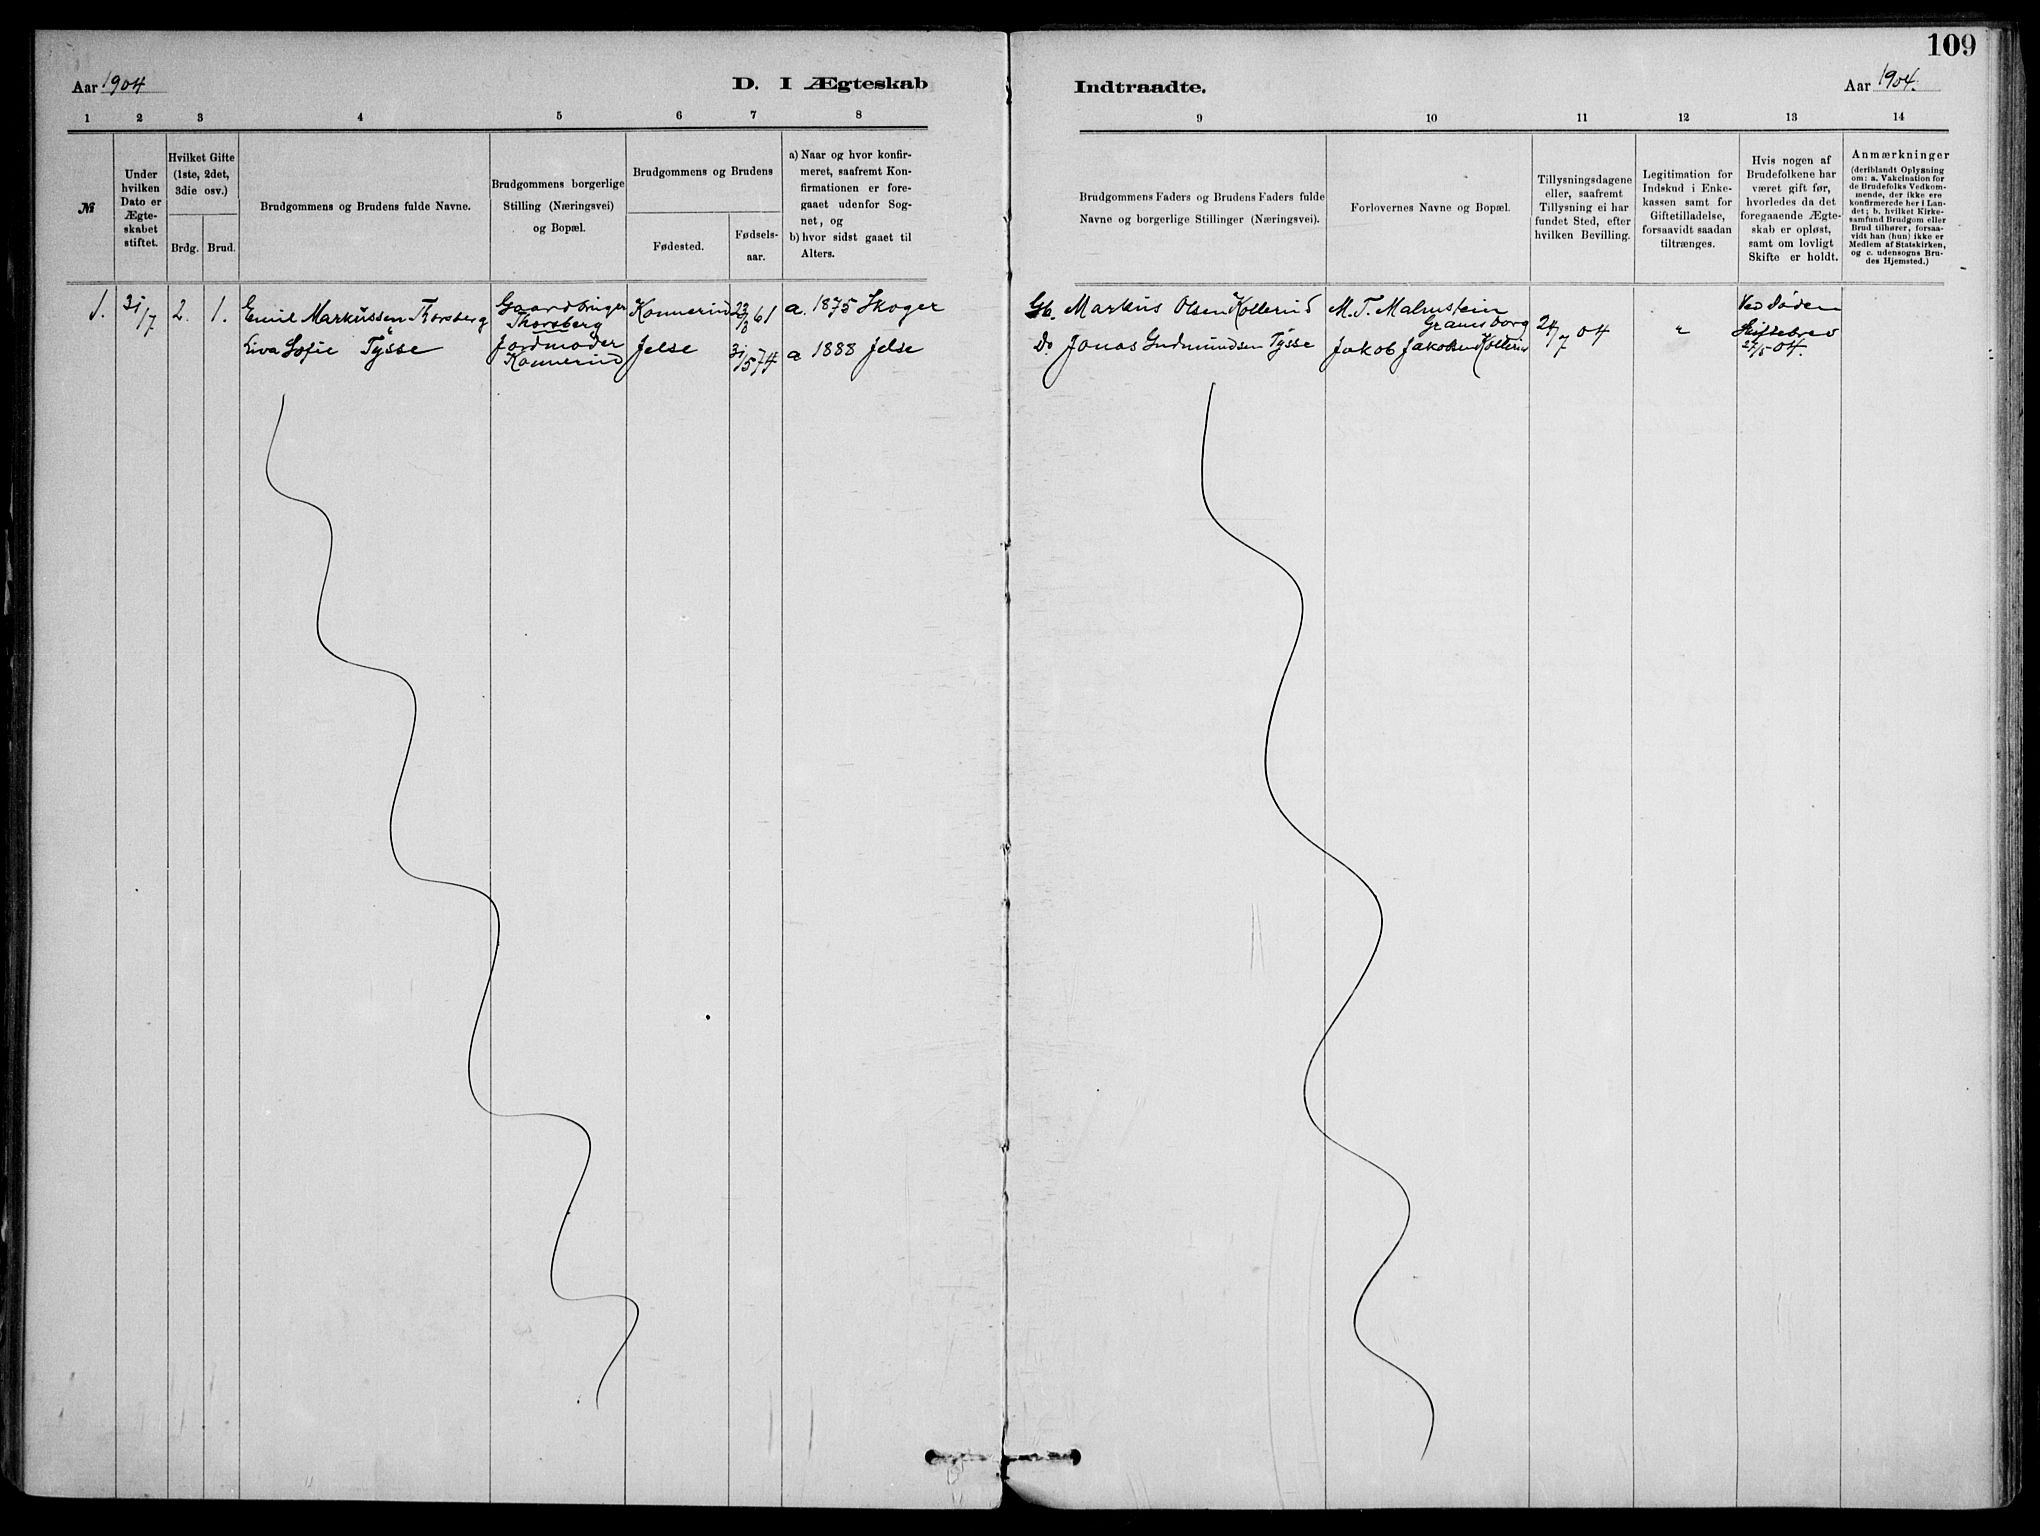 109
Aar 1904
D. I Ægteskab
Indtraadte.
Aar 1904.
1 2 3 4 5 6 7 8
9 10 11 12 13 14
№
Under
hvilken
Dato er
Ægte-
skabet
stiftet.
Hvilket Gifte
(1ste, 2det,
3die osv.)
Brdg. Brud.
Brudgommens og Brudens fulde Navne.
Brudgommens borgerlige
Stilling (Næringsvei)
og Bopæl.
Brudgommens og Brudens
Fødested.
Fødsels-
aar.
a) Naar og hvor konfir-
meret, saafremt Kon-
firmationen er fore-
gaaet udenfor Sog-
net, og
b) hvor sidst gaaet til
Alters.
Brudgommens Faders og Brudens Faders fulde
Navne og borgerlige Stillinger (Næringsvei).
Forlovernes Navne og Bopæl.
Tillysningsdagene
eller, saafremt
Tillysning ei har
fundet Sted, efter
hvilken Bevilling.
Legitimation for
Indskud i Enke-
kassen samt for
Giftetilladelse,
forsaavidt saadan
tiltrænges.
Hvis nogen af
Brudefolkene har
været gift før,
hvorledes da det
foregaaende Ægte-
skab er opløst,
samt om lovligt
Skifte er holdt.
Anmærkninger
(deriblandt Oplysning
om: a. Vakcination for
de Brudefolks Vedkom-
mende, der ikke ere
konfirmerede her i Lan-
det; b. hvilket Kirke-
samfund Brudgom eller
Brud tilhører, forsaa-
vidt han (hun) ikke er
Medlem af Statskirken,
og c. udensogns Bru-
des Hjemsted.)
1. 31/7 2. 1. Emil Markussen Thorsberg
Gaardbruger
Thorsberg
Konnerud 23/8 61 a. 1875 Skoger
Gb. Markus Olsen Kollerud
M. T. Malmstein
Gramsborg
24/7 04
"
Ved Døden
Skiftebrev
27/5 04.
Liva Sofie Tysse
Jordmoder
Konnerud
Jelse 31/5 74 a 1888 Jelse
Do Jonas Gudmundsen Tysse
Jakob Jakobsen Kollerud